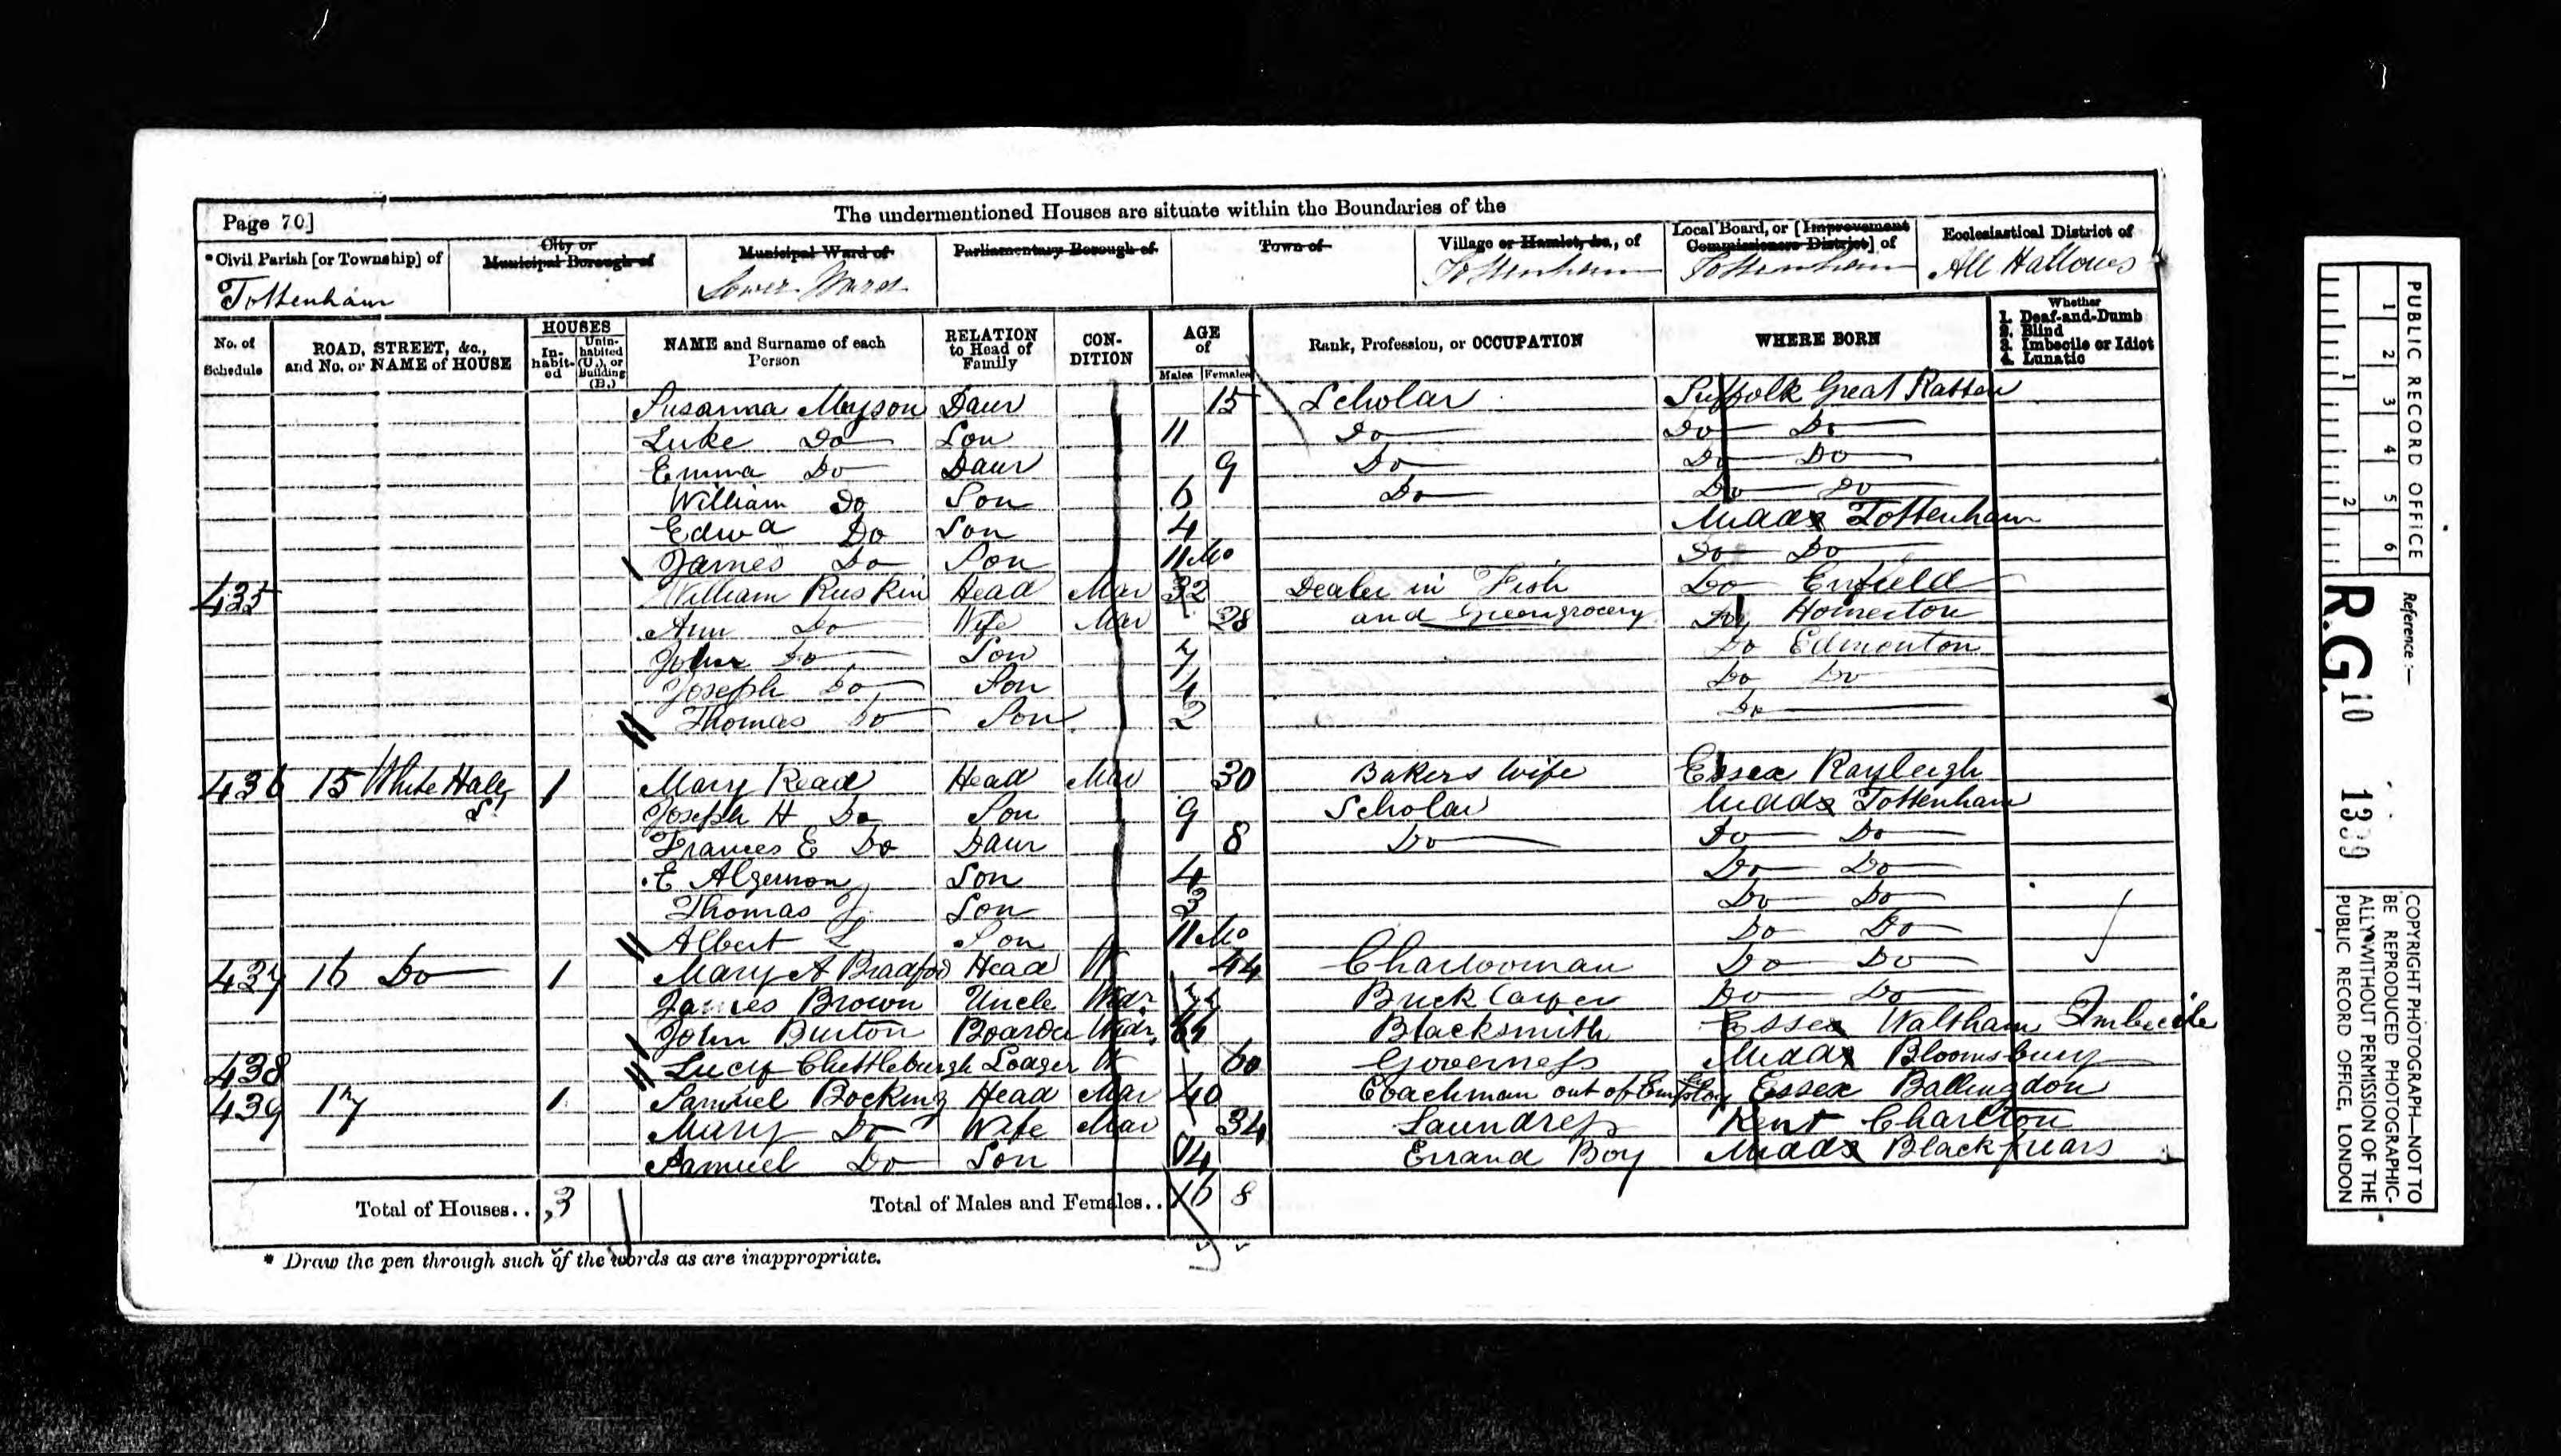 Page 70]
The undermentioned Houses are situate within the Boundaries of the
*Civil Parish [or Township] of
City or Municipal Borough of
Municipal Ward of
Parliamentary Borough of
Town of
Village or Hamlet, &c., of
Local Board, or [Improvement Commissioners District] of
Ecclesiastical District of
Tottenham
Lower Ward
Tottenham
Tottenham
All Hallows
No. of Schedule
ROAD, STREET, &c., and No. or NAME of HOUSE
HOUSES
In-habit-ed
Unin-habited (U.), or Building (B.)
NAME and Surname of each Person
RELATION to Head of Family
CON-DITION
AGE of
Males
Females
Rank, Profession, or OCCUPATION
WHERE BORN
Whether
1. Deaf-and-Dumb
2. Blind
3. Imbecile or Idiot
4. Lunatic
Susanna Mayson Daur 15 Scholar Suffolk Great
Luke Do Son 11 Do Do Do
Emma Do Daur 9 Do Do Do
William Do Son 6 Do Do Do
Edwd Do Son 4 Middx Tottenham
James Do Son 11 Mo Do Do
435 William Ruskin Head Mar 32 Dealer in Fish Do Enfield
Ann Do Wife Mar 38 and Greengrocery Do Homerton
John Do Son 7 Do Edmonton
Joseph Do Son 4 Do Do
Thomas Do Son 2 Do
436 15 White Hall St 1 Mary Read Head Mar 30 Bakers Wife Essex Rayleigh
Joseph H Do Son 9 Scholar Middx Tottenham
Frances E Do Daur 8 Do Do Do
E Algernon Son 4 Do Do
Thomas J Son 3 Do Do
Albert L Son 11 Mo Do Do
437 16 Do 1 Mary A Bradford Head W 44 Charwoman Do Do
James Brown Uncle Widr Brick Do Do
John Burton Boarder Widr Blacksmith Essex Waltham Imbecile
438 Lucy Chettleburgh Lodger W 60 Governess Middx Bloomsbury
439 17 1 Samuel Bocking Head Mar 40 Coachman out of Employ Essex Ballingdon
Mary Do Wife Mar 34 Laundress Kent Charlton
Samuel Do Son 14 Errand Boy Middx Blackfriars
Total of Houses.. 3
Total of Males and Females.. 16 8
* Draw the pen through such of the words as are inappropriate.
PUBLIC RECORD OFFICE
1 2 3 4 5 6
1 2
Reference:—
R.G. 10 1339
COPYRIGHT PHOTOGRAPH—NOT TO
BE REPRODUCED PHOTOGRAPHIC-
ALLY WITHOUT PERMISSION OF THE
PUBLIC RECORD OFFICE, LONDON